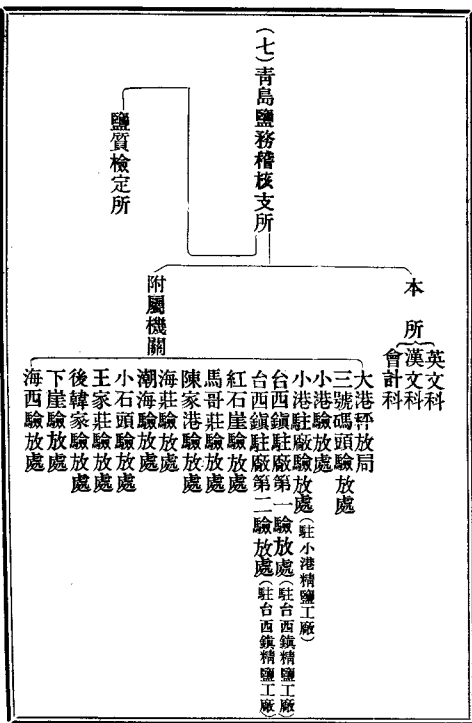 （七）青島鹽務稽核支所
本所
英文科
漢文科
會計科
附屬機關
大港秤放局
三號碼頭驗放處
小港驗放處
小港駐廠驗放處（駐小港精鹽工廠）
台西鎮駐廠第一驗放處（駐台西鎮精鹽工廠）
台西鎮駐廠第二驗放處（駐台西鎮精鹽工廠）
紅石崖驗放處
馬哥莊驗放處
陳家港驗放處
海莊驗放處
潮海驗放處
小石頭驗放處
王家莊驗放處
後韓家驗放處
下崖驗放處
海西驗放處
鹽質檢定所